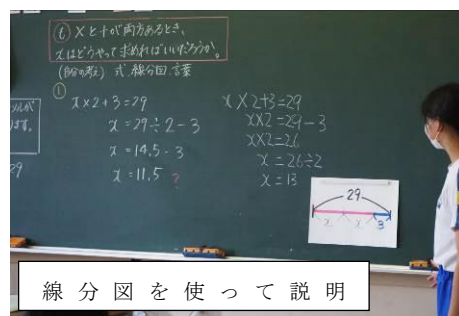 め ×と+が両方あるとき、
xはどうやって求めればいいだろうか。
(自分の考え) 式、線分図、言葉
①
x×2+3=29
x=29÷2-3
x=14.5-3
x=11.5 ?
x×2+3=29
x×2=29-3
x×2=26
x=26÷2
x=13
29
x x 3
線分図を使って説明